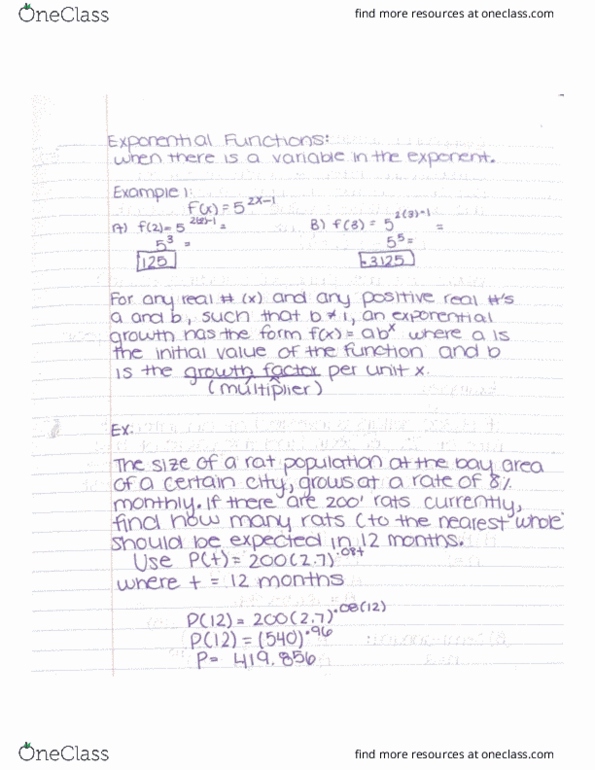 OneClass
find more resources at oneclass.com
Exponential Functions:
when there is a variable in the exponent.
Example 1:
f(x) = 5^2x-1
A) f(2) = 5^2(2)-1 = B) f(3) = 5^2(3)-1 =
5^3 = 5^5 =
125 3125
For any real # (x) and any positive real #'s
a and b, such that b ≠ 1, an exponential
growth has the form f(x) = ab^x where a is
the initial value of the function and b
is the growth factor per unit x.
(multiplier)
Ex:
The size of a rat population at the bay area
of a certain city, grows at a rate of 8%
monthly. If there are 200 rats currently,
find how many rats (to the nearest whole
should be expected in 12 months.
Use P(t) = 200(2.7)^.08t
where t = 12 months
P(12) = 200(2.7)^.08(12)
P(12) = (540)^.96
P = 419.856
OneClass
find more resources at oneclass.com